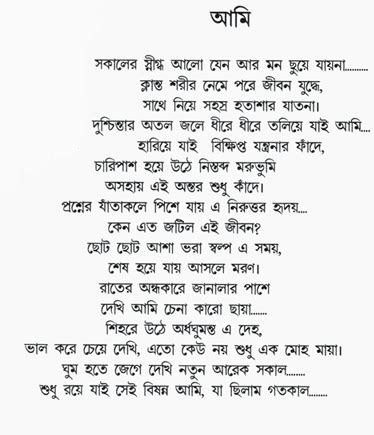 আমি
সকালের স্নীগ্ধ আলো যেন আর মন ছুয়ে যায়না..........
ক্লান্ত শরীর নেমে পরে জীবন যুদ্ধে,
সাথে নিয়ে সহস্র হতাশার যাতনা।
দুশ্চিন্তার অতল জলে ধীরে ধীরে তলিয়ে যাই আমি....
হারিয়ে যাই বিক্ষিপ্ত যন্ত্রনার ফাঁদে,
চারিপাশ হয়ে উঠে নিস্তব্দ মরুভুমি
অসহায় এই অন্তর শুধু কাঁদে।
প্রশ্নের যাঁতাকলে পিশে যায় এ নিরুত্তর হৃদয়....
কেন এত জটিল এই জীবন?
ছোট ছোট আশা ভরা স্বল্প এ সময়,
শেষ হয়ে যায় আসলে মরণ।
রাতের অন্ধকারে জানালার পাশে
দেখি আমি চেনা কারো ছায়া.......
শিহরে উঠে অর্ধঘুমন্ত এ দেহ,
ভাল করে চেয়ে দেখি, এতো কেউ নয় শুধু এক মোহ মায়া।
ঘুম হতে জেগে দেখি নতুন আরেক সকাল........
শুধু রয়ে যাই সেই বিষন্ন আমি, যা ছিলাম গতকাল........